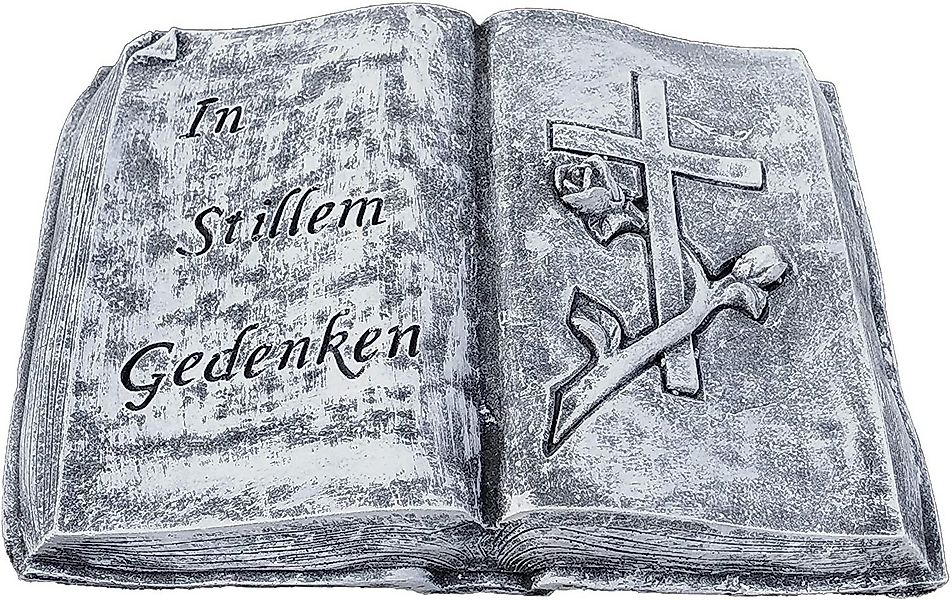 In
Stillem
Gedenken